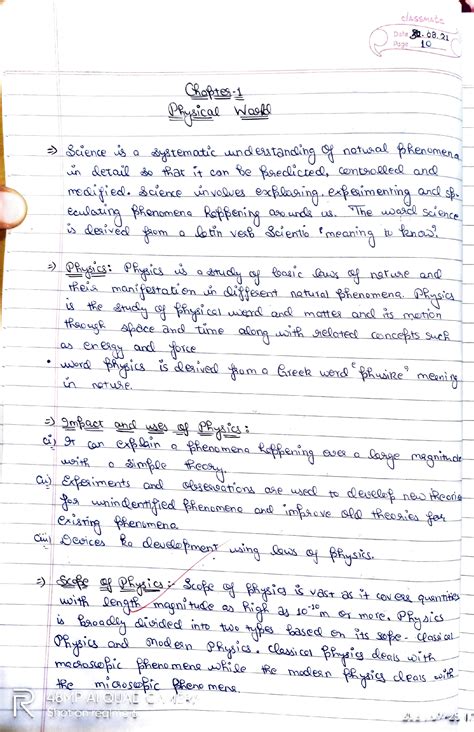 classmate
Date 31.08.21
Page 10
Chapter-1
Physical World
=> Science is a systematic understanding of natural phenomena
in detail so that it can be predicted, controlled and
modified. Science involves exploaring, experimenting and sp-
eculating phenomena happening arounds us. The word science
is derived from a latin verb Scientio 'meaning to know'.
=> Physics: Physics is a study of basic laws of nature and
their manifestation in different natural phenomena. Physics
is the study of physical word and matter and its motion
through space and time along with related concepts such
as energy and force
• word physics is derived from a Greek word "phusike" meaning
in nature.
=> Impact and uses of Physics:
(i) It can explain a phenomena happening over a large magnitude
with a simple theory.
(ii) Experiments and observations are used to develop new theorie
for unindentified phenomena and improve old theories for
existing phenomena.
(iii) Devices ko development using laws of physics.
=> Scope of Physics:- Scope of physics is vast as it covers quantities
with length magnitude as high as 10⁻¹⁰ m or more. Physics
is broadly divided into two types based on its sope- classical
Physics and modern Physics. classical physics deals with
macroscopic phenomena while the modern physics deals with
the microscopic phenomena.
R
48MP AI QUAD CAMERA